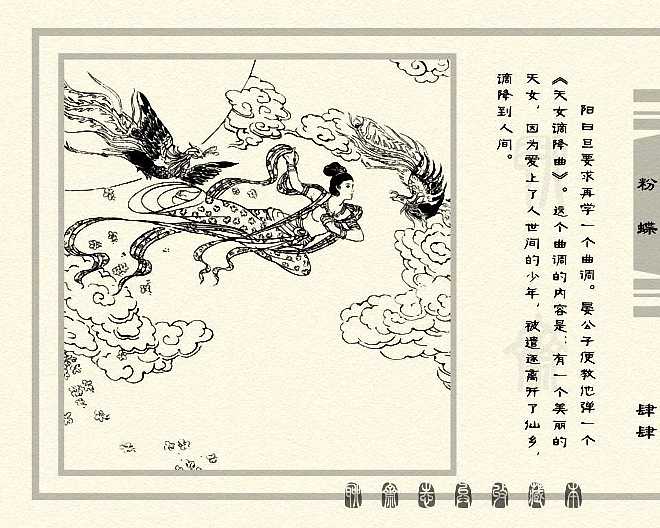 阳曰旦要求再学一个曲调。晏公子便教他弹一个
《天女谪降曲》。这个曲调的内容是：有一个美丽的
天女，因为爱上了人世间的少年，被遣逐离开了仙乡，
谪降到人间。
粉蝶
肆肆
聊斋志异收藏本